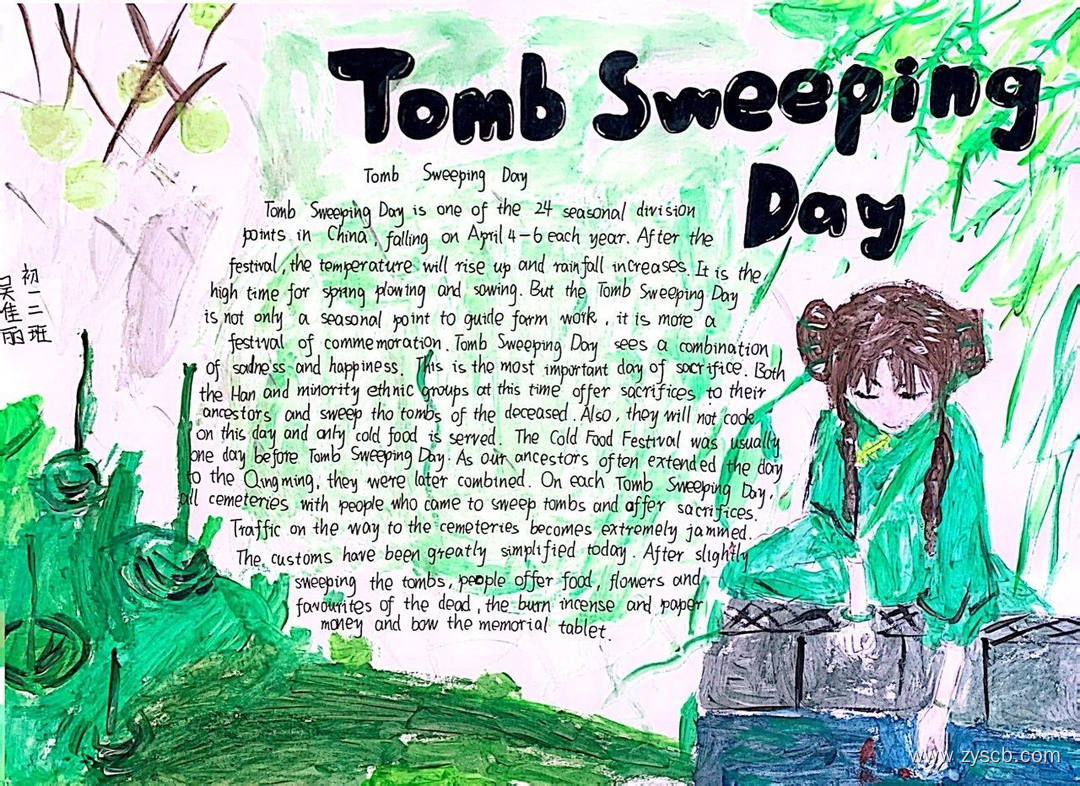 Tomb Sweeping
Day
Tomb Sweeping Day
Tomb Sweeping Day is one of the 24 seasonal division
points in China, falling on April 4-6 each year. After the
festival, the temperature will rise up and rainfall increases. It is the
high time for spring plowing and sowing. But the Tomb Sweeping Day
is not only a seasonal point to guide farm work, it is more a
festival of commemoration. Tomb Sweeping Day sees a combination
of sadness and happiness. This is the most important day of sacrifice. Both
the Han and minority ethnic groups at this time offer sacrifices to their
ancestors and sweep tho tombs of the deceased. Also, they will not cook
on this day and only cold food is served. The Cold Food Festival was usually
one day before Tomb Sweeping Day. As our ancestors often extended the day
to the Qingming, they were later combined. On each Tomb Sweeping Day,
all cemeteries with people who came to sweep tombs and offer sacrifices.
Traffic on the way to the cemeteries becomes extremely jammed.
The customs have been greatly simplified today. After slightly
sweeping the tombs, people offer food, flowers and
favourites of the dead, the burn incense and paper
money and bow the memorial tablet.
初一三班
吴佳丽
www.zyscb.com